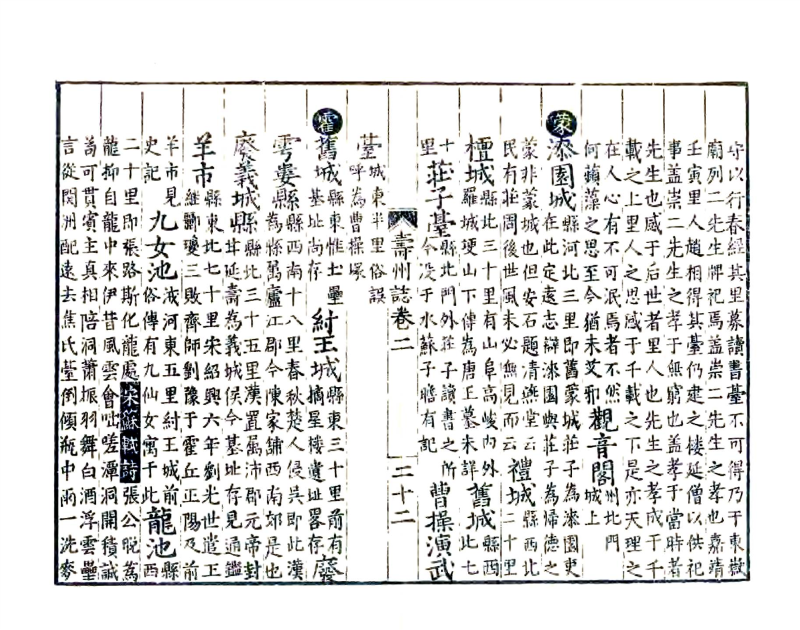 守以行春經其里募讀書臺不可得乃于東嶽
廟列二先生牌祀焉蓋崇二先生之孝也嘉靖
壬寅里人趙相得其臺仍建之棲延僧以供祀
事蓋崇二先生之孝于無窮也蓋孝于當時者
先生也感于后世者里人也先生之孝成于千
載之上里人之思感于千載之下是亦天理之
在人心有不可泯焉者不然何蘋藻之思至今猶未艾邪 觀音閣 州北門城上
蒙 漆園城 縣河北三里即舊蒙城莊子為漆園吏在此定遠志辯漆園與莊子為婦德之
蒙非蒙城也但安石題清燕堂云民有莊周後世風未必無見而云 禮城 縣西北二十里
檀城 縣北三十里有山阜高峻內外羅城埂山下傳為唐王墓未詳 舊城 縣西北七
十里 莊子臺 縣北門外莊子讀書之所今沒于水蘇子瞻有記 曹操演武
壽州誌卷二 二十二
臺 城東半里俗誤呼為曹操塚
霍 舊城 縣東惟土壘基址尚存 紂王城 縣東三十里前有摘星樓遺址畧存 廢
雩婁縣 縣西南十八里春秋楚人侵吳即此漢為縣屬廬江郡今陳家鋪西南郊是也
廢義城縣 縣北三十五里漢置屬沛郡元帝封甘延壽為義城侯今基址存見通鑑
羊市 縣東北七十里宋紹興六年劉光世遣王維酈瓊三敗齊師劉豫于霍丘正陽及前
羊市見史記 九女池 淠河東五里紂王城前俗傳有九仙女寓于此 龍池 縣西
二十里即張路斯化龍處 宋蘇軾詩 張公脫為
龍抑自龍中來伊昔風雲會咄嗟潭洞開積誠
苟可貫賓主真相陪洞蕭振羽舞白酒浮雲罍
言從関洲配遠去焦氏臺倒傾瓶中雨一洗麥